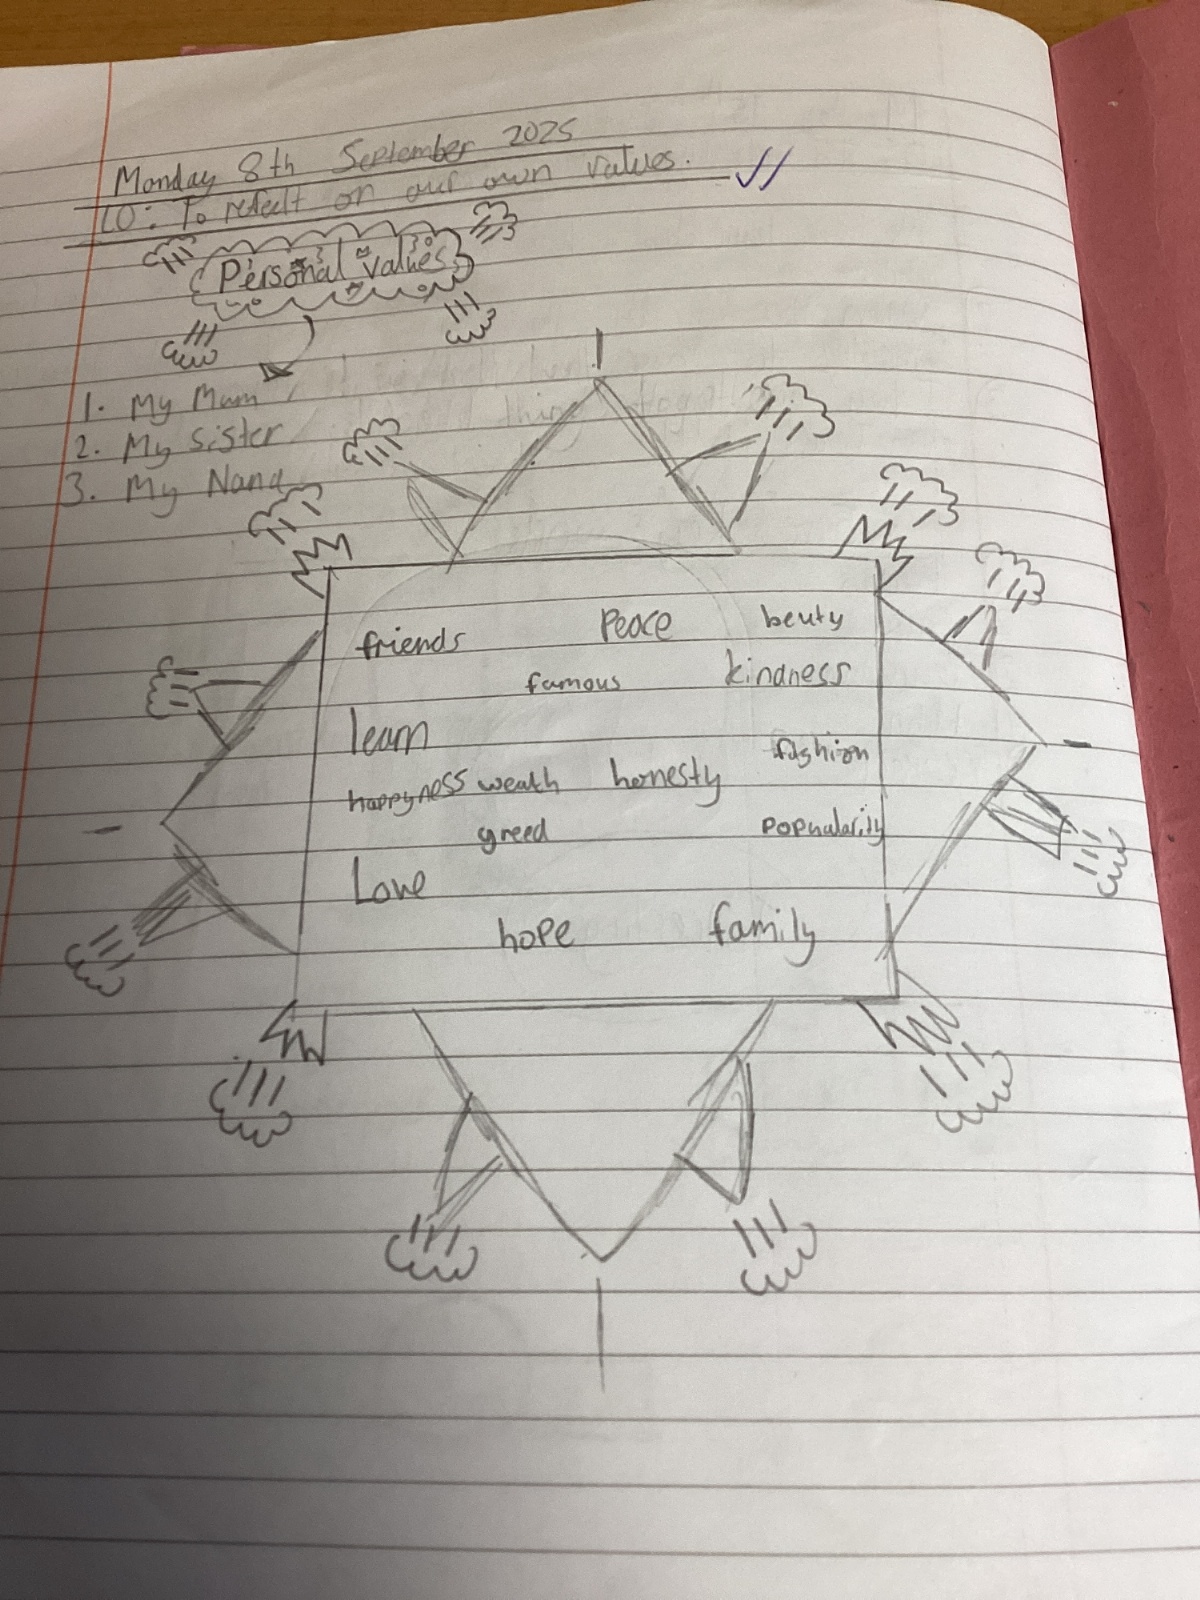 Monday 8th September 2025
LO: To refelt on our own values.
Personal values
1. My Mum
2. My sister
3. My Nana
friends Peace beuty
famous kindness
learn
fashion
happyness weath honesty
greed popularity
Love
hope family